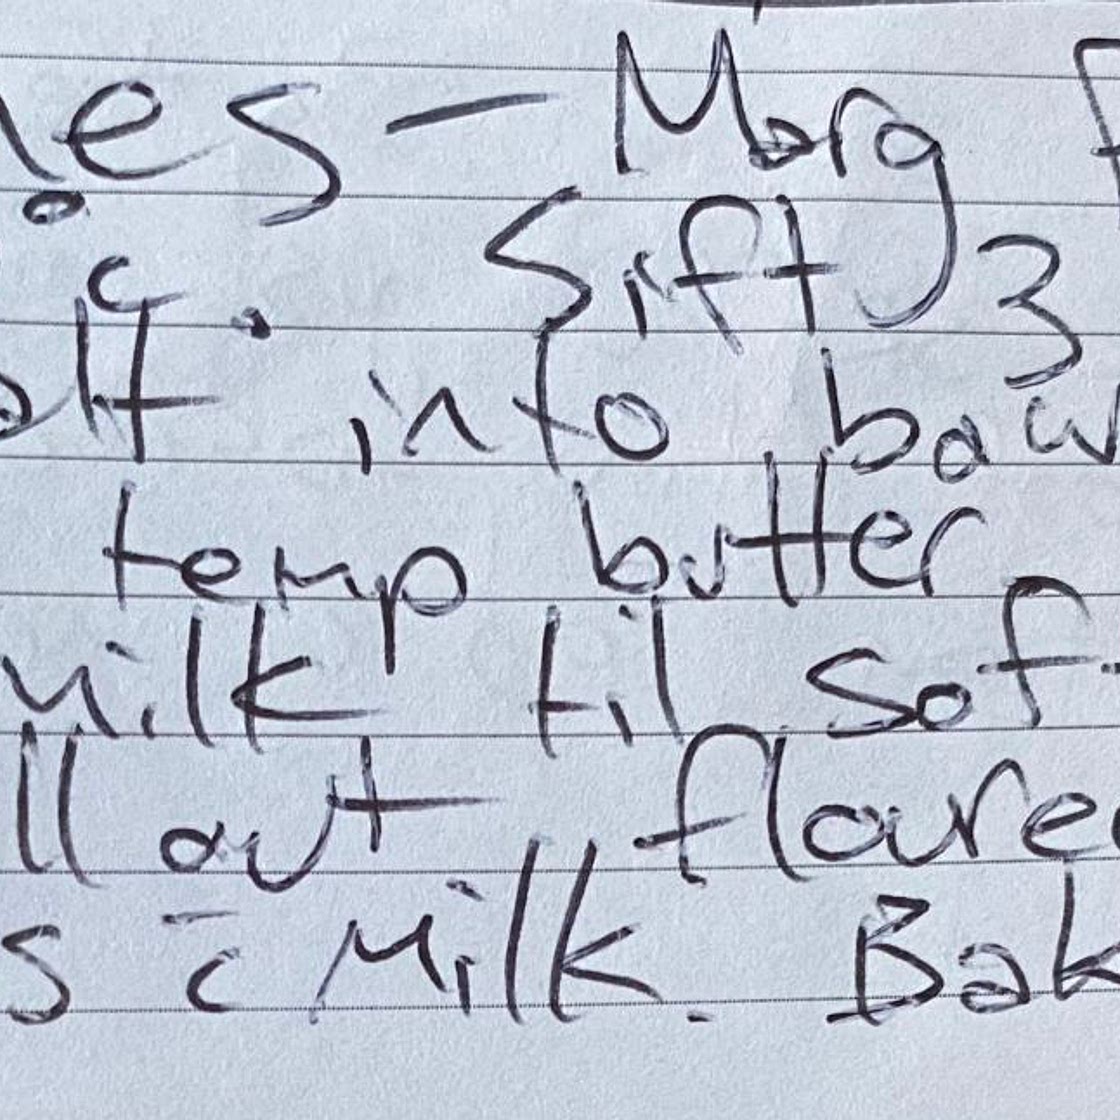 nes - Marg F
°C. Sift 3
alt into bow
temp butter
milk til sof
ll out floure
s c̄ milk. Bak